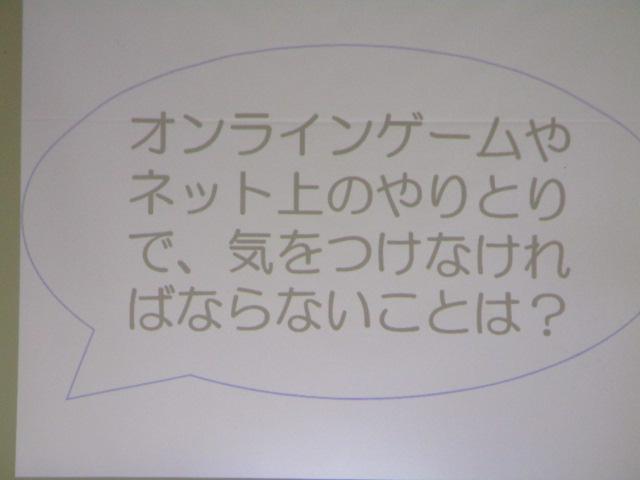 オンラインゲームや
ネット上のやりとり
で、気をつけなけれ
ばならないことは？